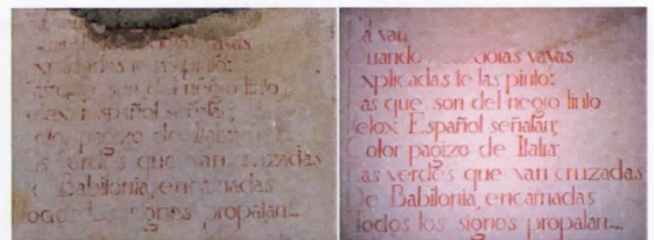 van
vayas
xplicadas te las pinto:
son del negro tinto
elox Español señalan;
olor pagizo de Italia
as verdes que van cruzadas
Babilonia, encarnadas
Todos los signos propalan...
a van
Cuando doias vayas
xplicadas te las pinto:
as que son del negro tinto
elox Español señalan;
olor pagizo de Italia
as verdes que van cruzadas
De Babilonia, encarnadas
Todos los signos propalan...